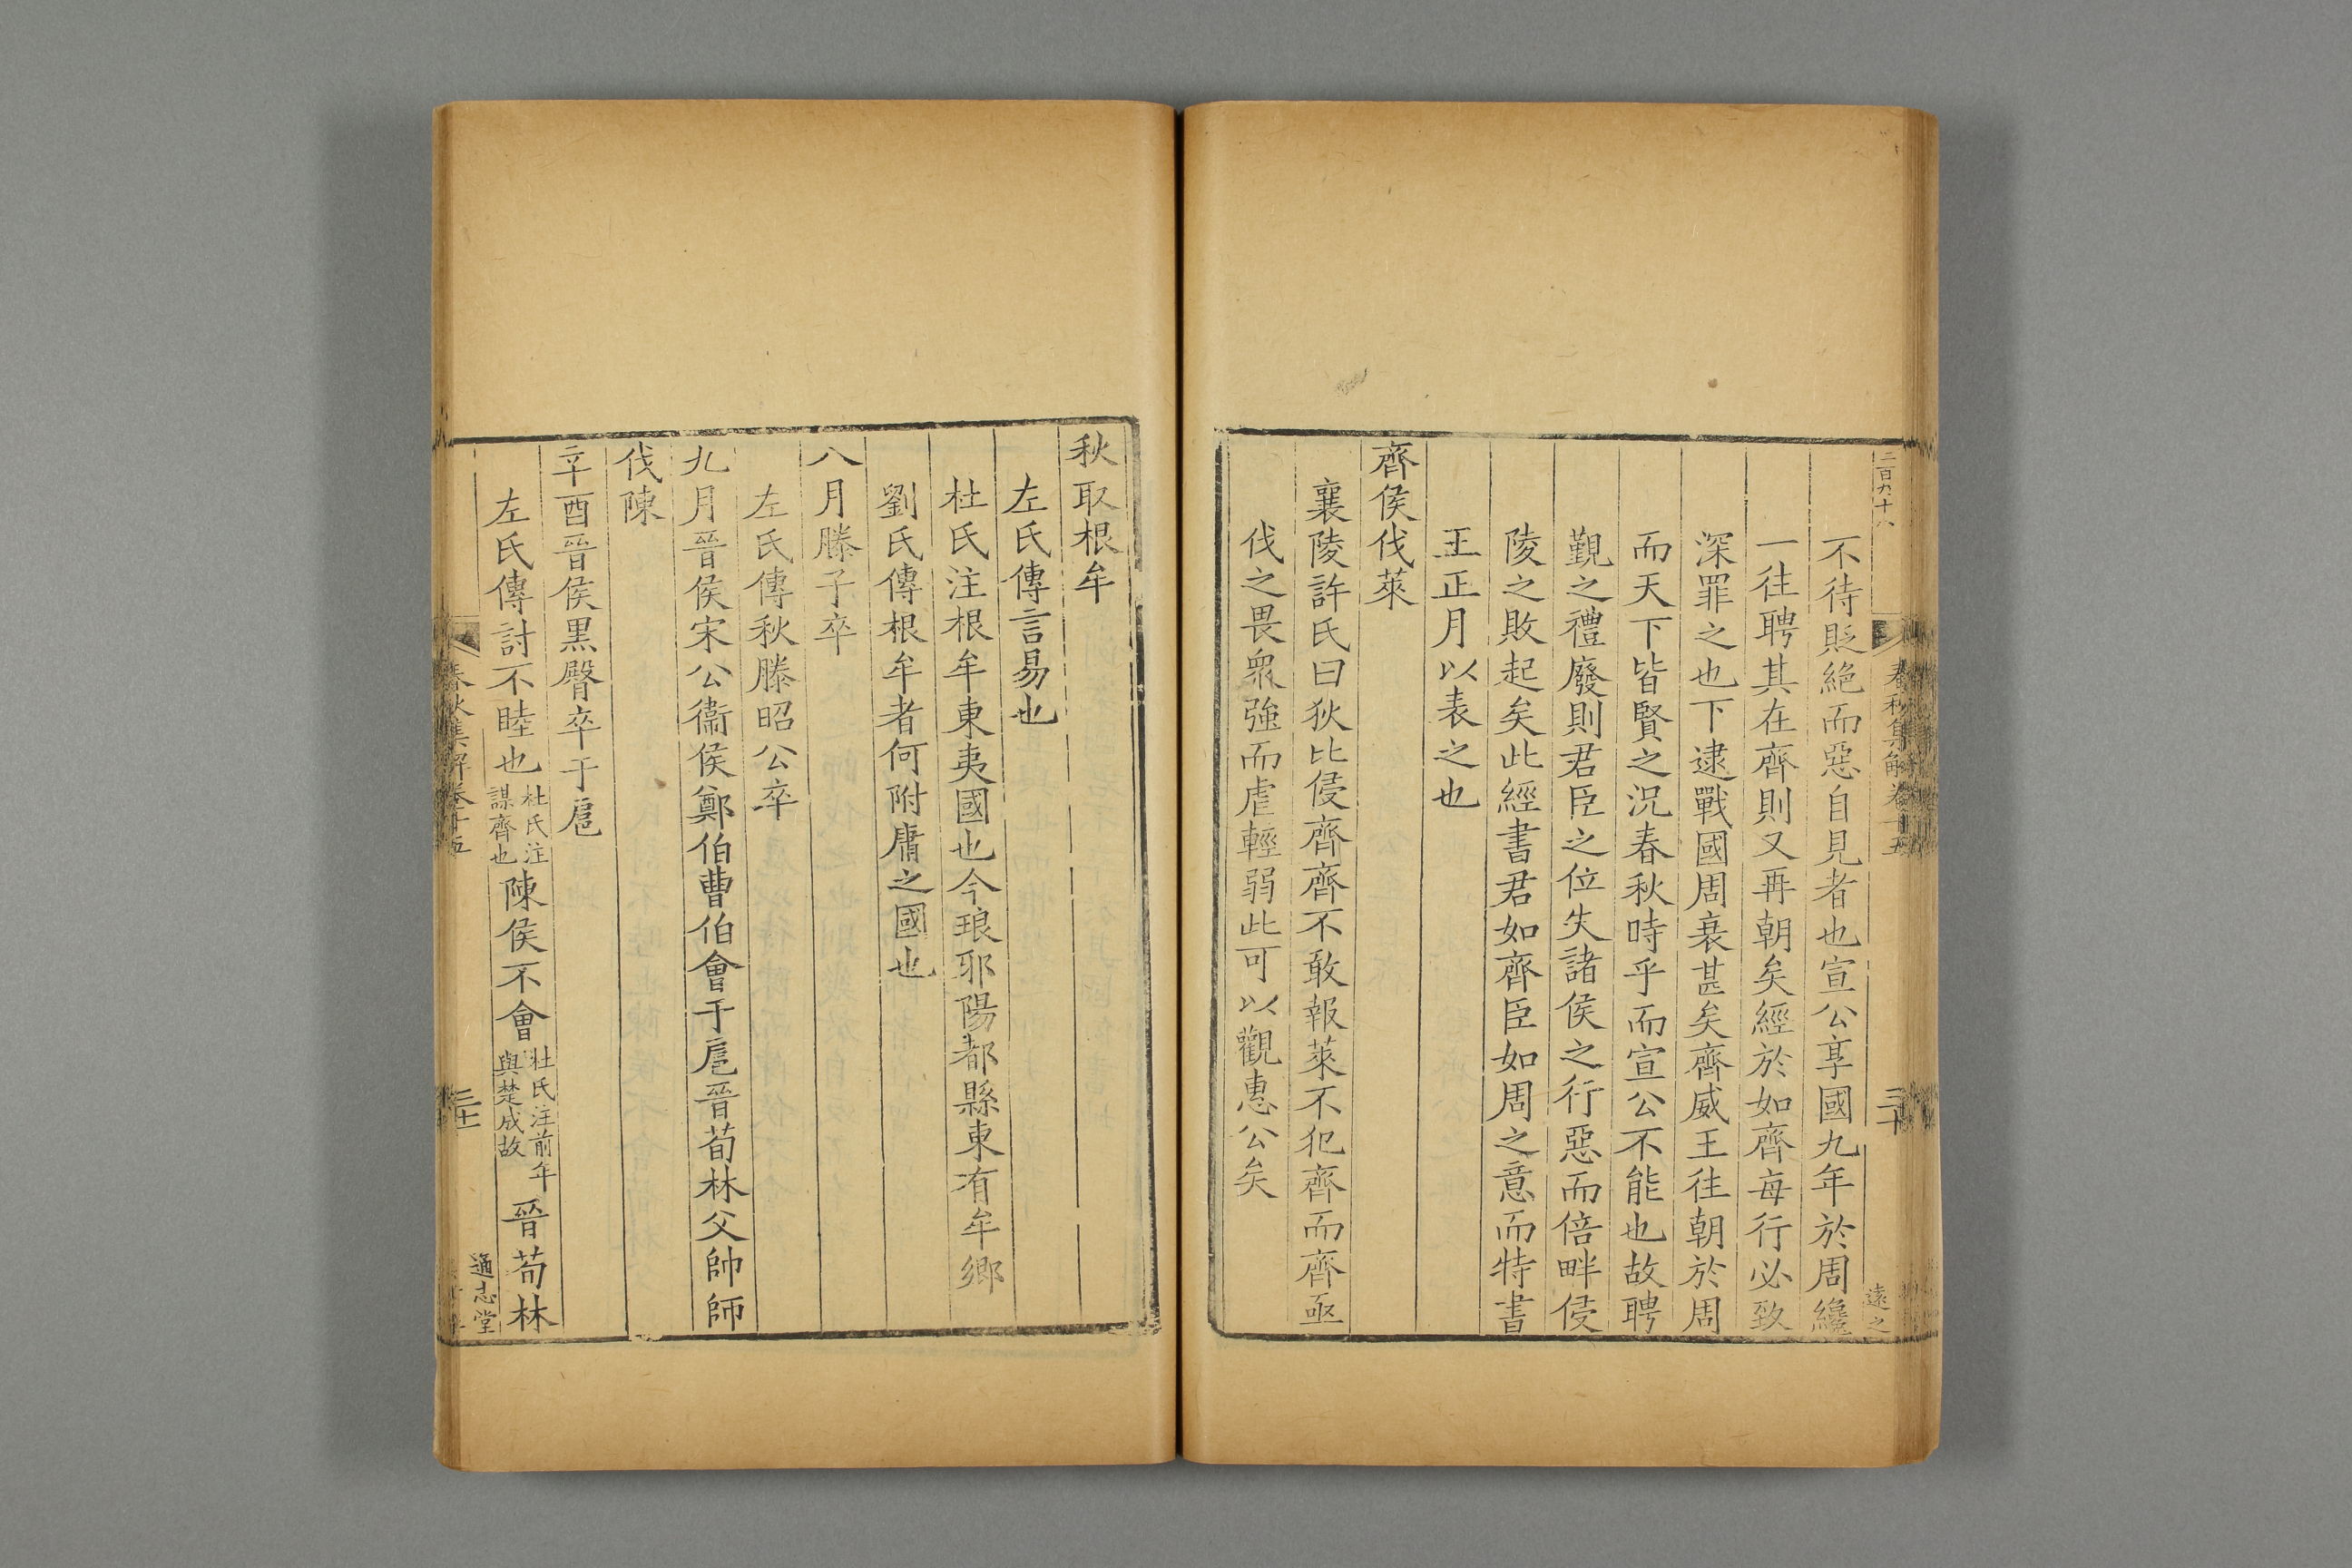 二百九十八
春秋集解卷十五
三十
遠之
不待貶絕而惡自見者也宣公享國九年於周纔
一往聘其在齊則又再朝矣經於如齊每行必致
深罪之也下逮戰國周衰甚矣齊威王往朝於周
而天下皆賢之況春秋時乎而宣公不能也故聘
覲之禮廢則君臣之位失諸侯之行惡而倍畔侵
陵之敗起矣此經書君如齊臣如周之意而特書
王正月以表之也
齊侯伐萊
襄陵許氏曰狄比侵齊齊不敢報萊不犯齊而齊亟
伐之畏衆強而虐輕弱此可以觀惠公矣
秋取根牟
左氏傳言易也
杜氏注根牟東夷國也今琅邪陽都縣東有牟鄉
劉氏傳根牟者何附庸之國也
八月滕子卒
左氏傳秋滕昭公卒
九月晉侯宋公衞侯鄭伯曹伯會于扈晉荀林父帥師
伐陳
辛酉晉侯黑臀卒于扈
左氏傳討不睦也杜氏注謀齊也陳侯不會杜氏注前年與楚成故晉荀林
春秋集解卷十五
三十一
通志堂